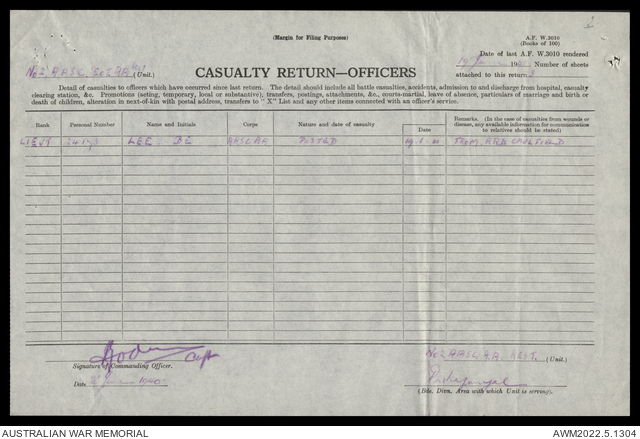 (Margin for Filing Purposes)
A.F. W.3010
(Books of 100)
Date of last A.F. W.3010 rendered
Number of sheets
attached to this return
(Unit.)
CASUALTY RETURN—OFFICERS
Detail of casualties to officers which have occurred since last return. The detail should include all battle casualties, accidents, admission to and discharge from hospital, casualty
clearing station, &c. Promotions (acting, temporary, local or substantive); transfers, postings, attachments, &c., courts-martial, leave of absence, particulars of marriage and birth or
death of children, alteration in next-of-kin with postal address, transfers to "X" List and any other items connected with an officer's service.
Rank Personal Number Name and Initials Corps Nature and date of casualty Date Remarks. (In the case of casualties from wounds or
disease, any available information for communication
to relatives should be stated)
LIEUT LEE BE POSTED FROM CAULFIELD
Capt
Signature of Commanding Officer.
Date
(Unit.)
(Bde. Divn. Area with which Unit is serving).
AUSTRALIAN WAR MEMORIAL
AWM2022.5.1304